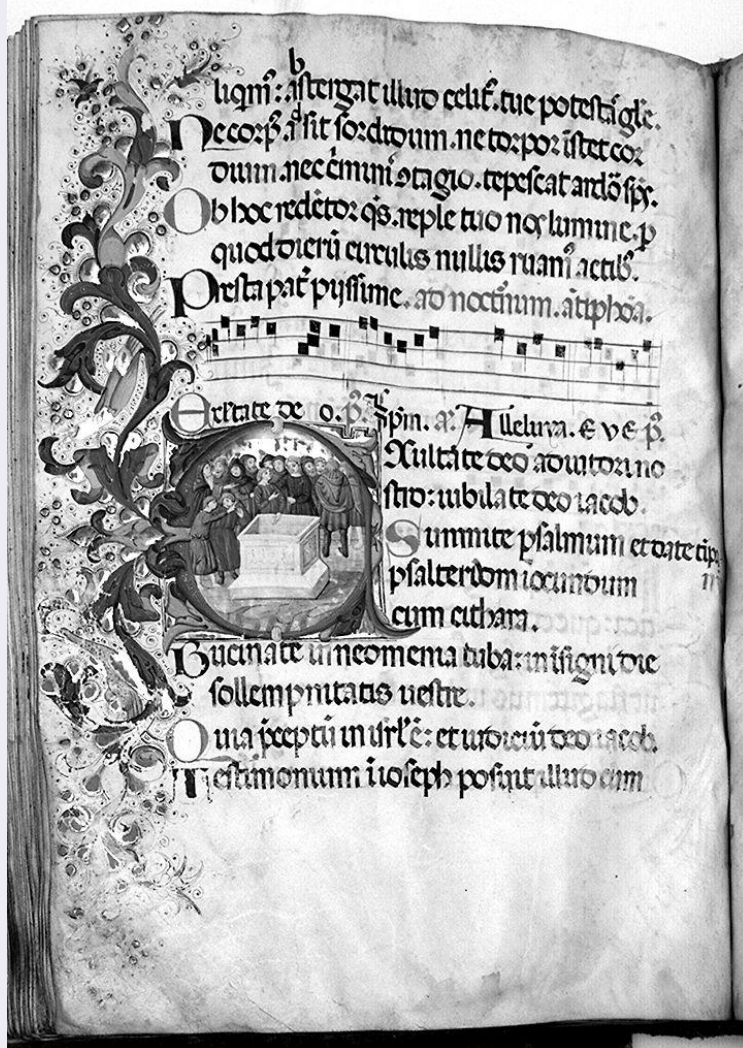 b
liqm̄: astergat illud celit᷒. tue potestat᷒ gl̄e.
Ne corp̄. assit sordidum. ne torpor īstet cor
dium. nec c̄imini᷒ ꝯtagio. tepescat ardō sp̄s.
Ob hoc redētor q̄s. reple tuo nos lumine. p̄
quod dierū circulis nullis ruam᷒ actib᷒.
Presta pat̄ pijssime. ad noctnum. ātiphōa.
Exultate deo. p̄s. Ip̄m. a᷒. Alleluya. E V E p̄.
Exultate deo adiutori no
stro: iubilate deo iacob.
Summite psalmum et date tīp
m
psalterium iocundum
cum cithara.
Bucinate in neomenia tuba: in isigni die
sollempnitatis uestre.
Quia p̄ceptū in isrl̄ ē: et iudiciū deo iacob.
Testimonium ī ioseph posuit illud cum